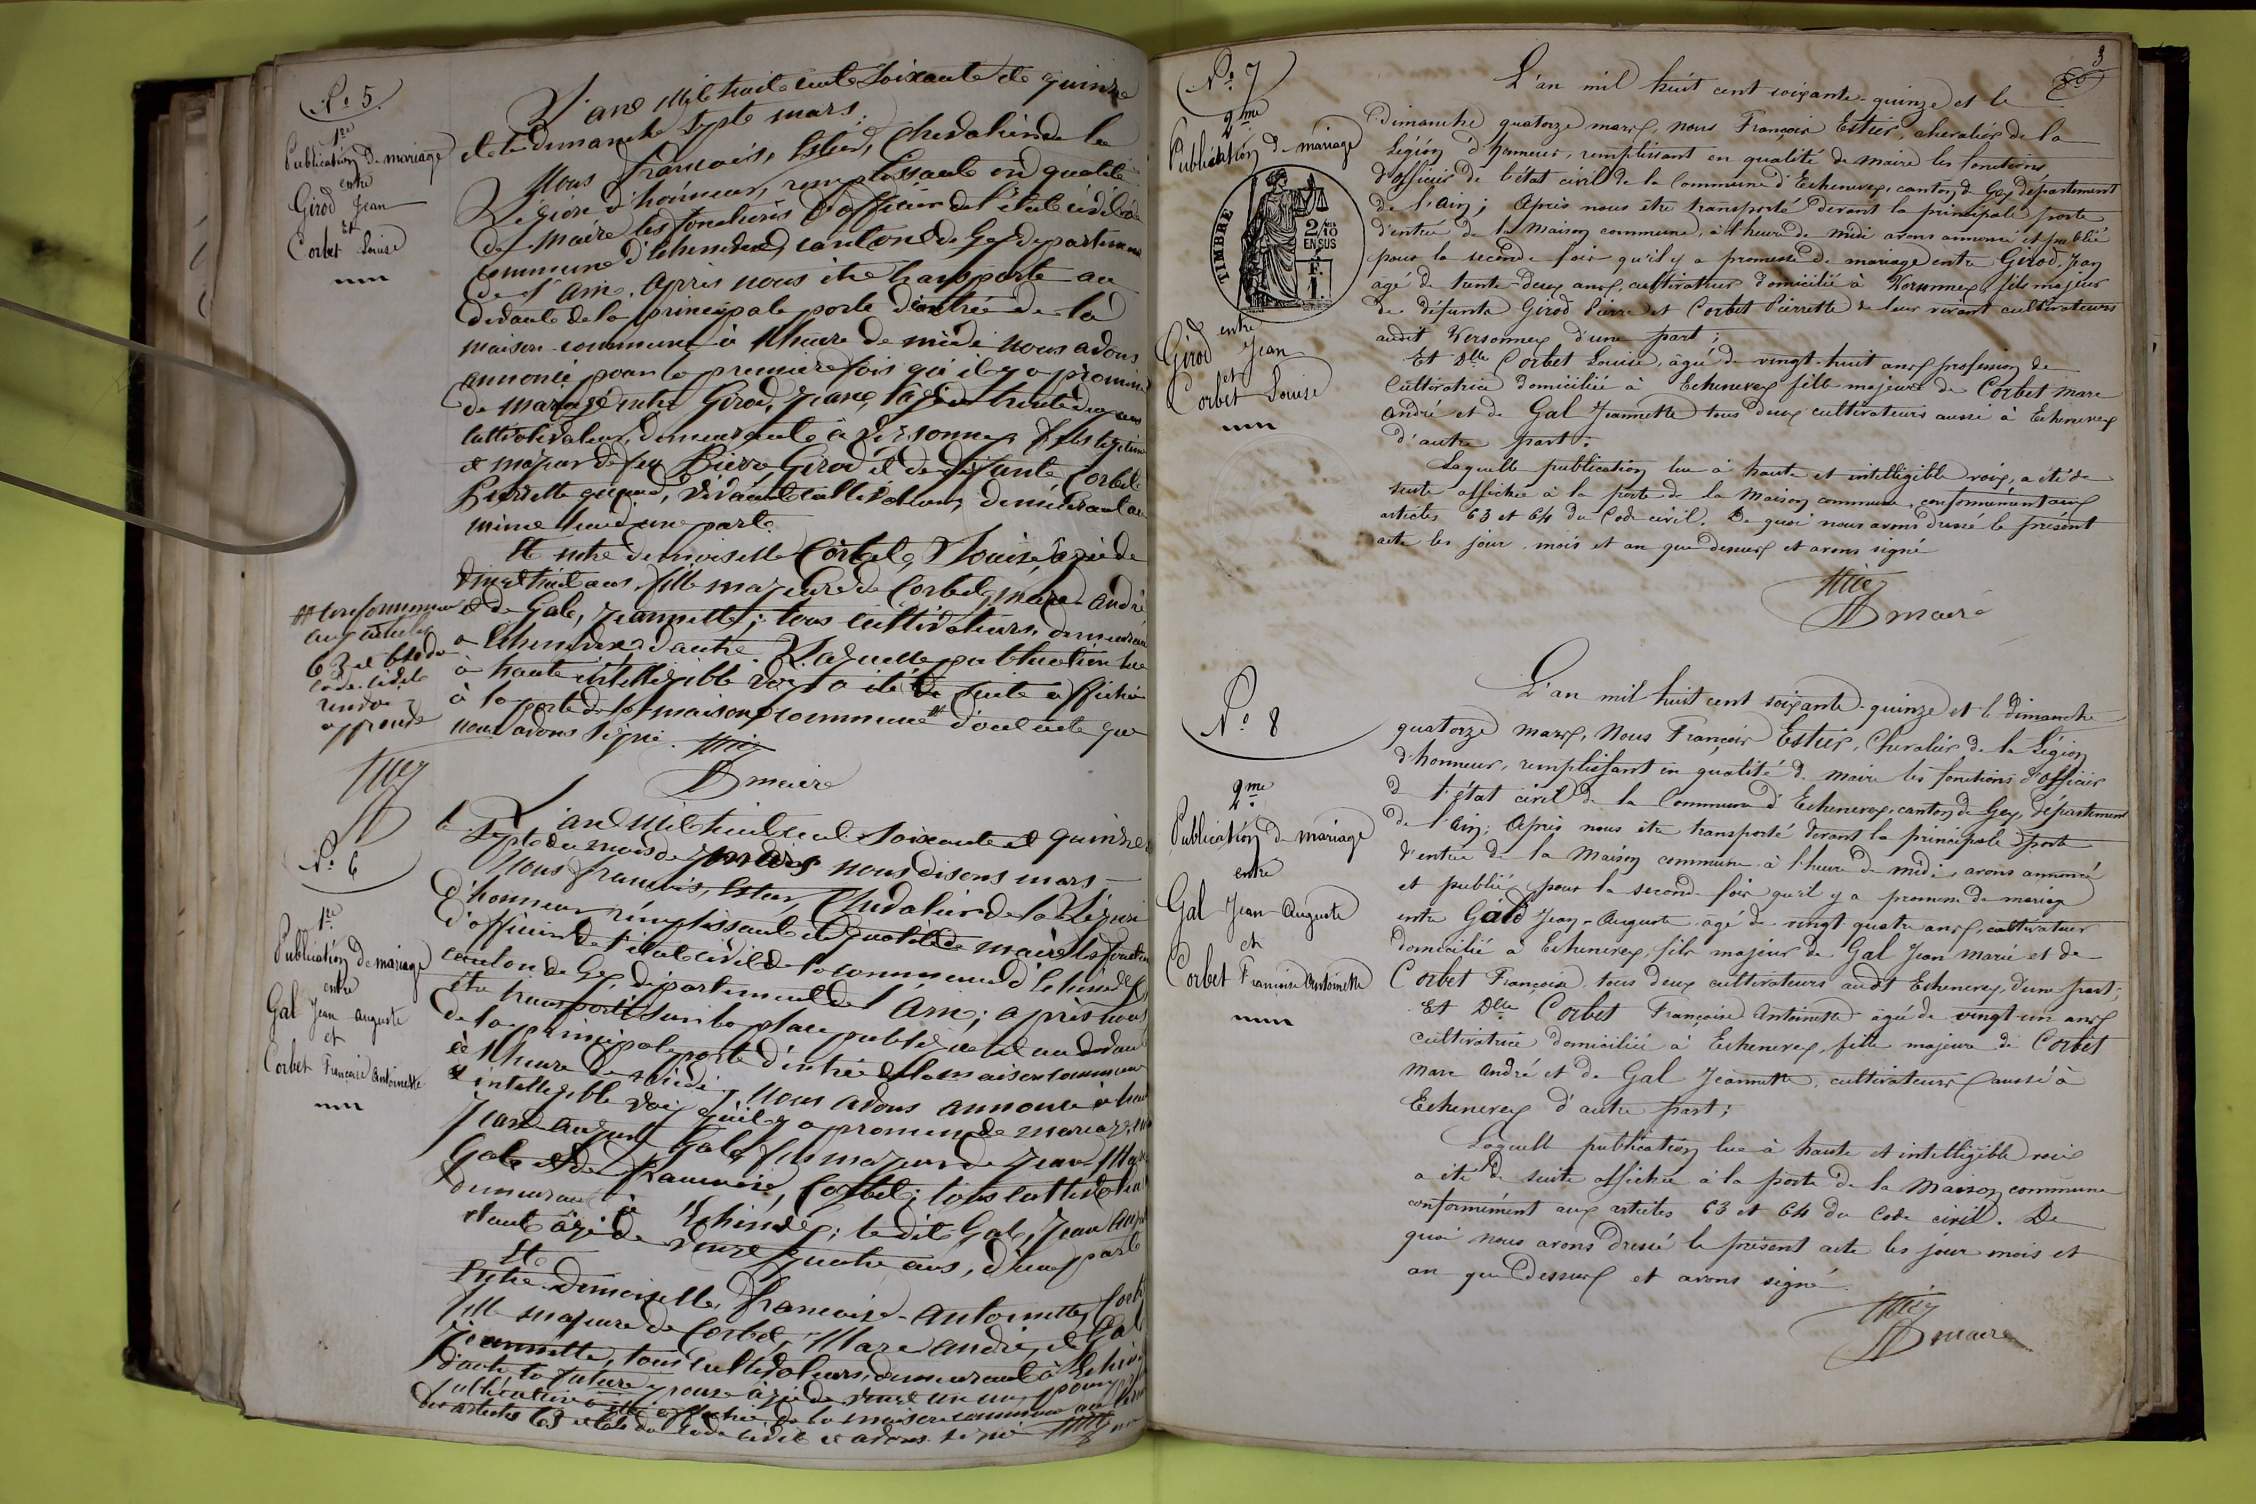 N.º 5.
1re
Publication de mariage
entre
Girod Jean
Et
Corbet Louise
L'an mil huit cent soixante et quinze
et le dimanche sept mars;
Nous François, Estier, Chevalier de la
Légion d'honneur, remplissant en qualité
de Maire les fonctions d'officier de l'état civil de
commune d'Echenevex, canton de Gex département
de l'Ain. Après nous être transporté au
devant de la principale porte d'entrée de la
maison commune à l'heure de midi nous avons
annoncé pour la première fois qu'il y a promesse
de mariage entre Girod, Jean, âgé de trente deux ans
cultivateur, demeurant à Versonnex fils légitime
et majeur de feu Pierre Girod et de défunte Corbet
Pierrette, vivant cultivateurs demeurant au
même lieu d'une part.
Et entre demoiselle Corbet, Louise, âgée de
vingt huit ans, fille majeure de Corbet, marc André
et de Gal, Jeannette; tous cultivateurs, demeurant
à Echenevex d'autre. Laquelle publication lue
à haute intelligible voix a été de suite affichée
à la porte de la maison commune # d'ont acte que
nous avons signé.
maire
# Conformément
aux articles
63 et 64 du
code civil
renvoi
approuvé
N.º 6
1re
Publication de mariage
entre
Gal Jean auguste
et
Corbet Françoise Antoinette
L'an mil huit cent soixante et quinze
le sept du mois de nous disons mars
Nous françois, Estier, Chevalier de la Légion
d'honneur remplissant en qualité de maire les fonctions
d'officier de l'état civil de la commune d'Echenevex
canton de Gex, département de l'Ain; après nous
être transporté sur la place publique et au devant
de la principale porte d'entrée de la maison commune
à l'heure de midi, nous avons annoncé à haute
et intelligible voix qu'il y a promesse de mariage entre
Jean auguste Gal, fils majeur de Jean Marie
Gal et de Françoise, Corbet; tous cultivateurs
demeurant à Echenevex; le dit Gal, Jean Auguste
étant âgé de vingt quatre ans, d'une part
Et
Entre Demoiselle, francoise-antoinette, Corbet
fille majeure de Corbet, Marc André, et Gal
Jeannette, tous cultivateurs, demeurant à Echenevex
d'autre, la future épouse âgée de vingt un ans,
publication affichée de la maison commune
des articles 63 et 64 du code civil et avons signé
3
N.º 7
2me
Publication de mariage
TIMBRE
2/10
EN SUS
F.
1.
entre
Girod Jean
et
Corbet Louise
L'an mil huit cent soixante-quinze et le
Dimanche quatorze mars, nous François Estier, chevalier de la
Légion d'honneur, remplissant en qualité de maire les fonctions
d'officier de l'état civil de la Commune d'Echenevex, canton de Gex département
de l'Ain; Après nous être transporté devant la principale porte
d'entrée de la Maison commune, à l'heure de midi avons annoncé et publié
pour la seconde fois qu'il y a promesse de mariage entre Girod, Jean
âgé de trente-deux ans, cultivateur domicilié à Versonnex, fils majeur
de défunts Girod Pierre et Corbet Pierrette de leur vivant cultivateurs
audit Versonnex d'une part;
Et Dlle Corbet Louise, âgée de vingt-huit ans profession de
Cultivatrice domiciliée à Echenevex fille majeure de Corbet Marc
André et de Gal Jeannette tous deux cultivateurs aussi à Echenevex
d'autre part;
Laquelle publication lue à haute et intelligible voix, a été de
suite affichée à la porte de la Maison commune, conformément aux
articles 63 et 64 du Code civil. De quoi nous avons dressé le présent
acte les jour, mois et an que dessus et avons signé
maire
N.º 8
2me
Publication de mariage
entre
Gal Jean-Auguste
et
Corbet Francoise Antoinette
L'an mil huit cent soixante-quinze et le dimanche
quatorze mars, Nous François Estier, Chevalier de la Légion
d'honneur, remplissant en qualité de maire les fonctions d'officier
de l'état civil de la Commune d'Echenevex, canton de Gex, département
de l'Ain; Après nous être transporté devant la principale porte
d'entrée de la Maison commune à l'heure de midi, avons annoncé
et publié pour la seconde fois qu'il y a promesse de mariage
entre Gal Jean-Auguste âgé de vingt quatre ans, cultivateur
domicilié à Echenevex, fils majeur de Gal Jean Marie et de
Corbet Françoise tous deux cultivateurs audt Echenevex, d'une part;
Et Dlle Corbet Françoise Antoinette âgée de vingt-un ans
cultivatrice domiciliée à Echenevex, fille majeure de Corbet
Marc André et de Gal Jeannette, cultivateurs aussi à
Echenevex d'autre part;
Laquelle publication lue à haute et intelligible voix
a été de suite affichée à la porte de la Maison commune
conformément aux articles 63 et 64 du Code civil. De
quoi nous avons dressé le présent acte les jour mois et
an que dessus et avons signé
maire